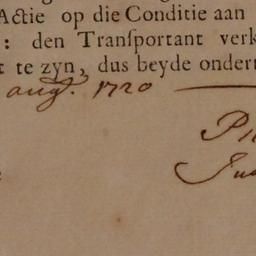 Actie op die Conditie aan
: den Tranſportant verk
t te zyn, dus beyde onder
aug. 1720